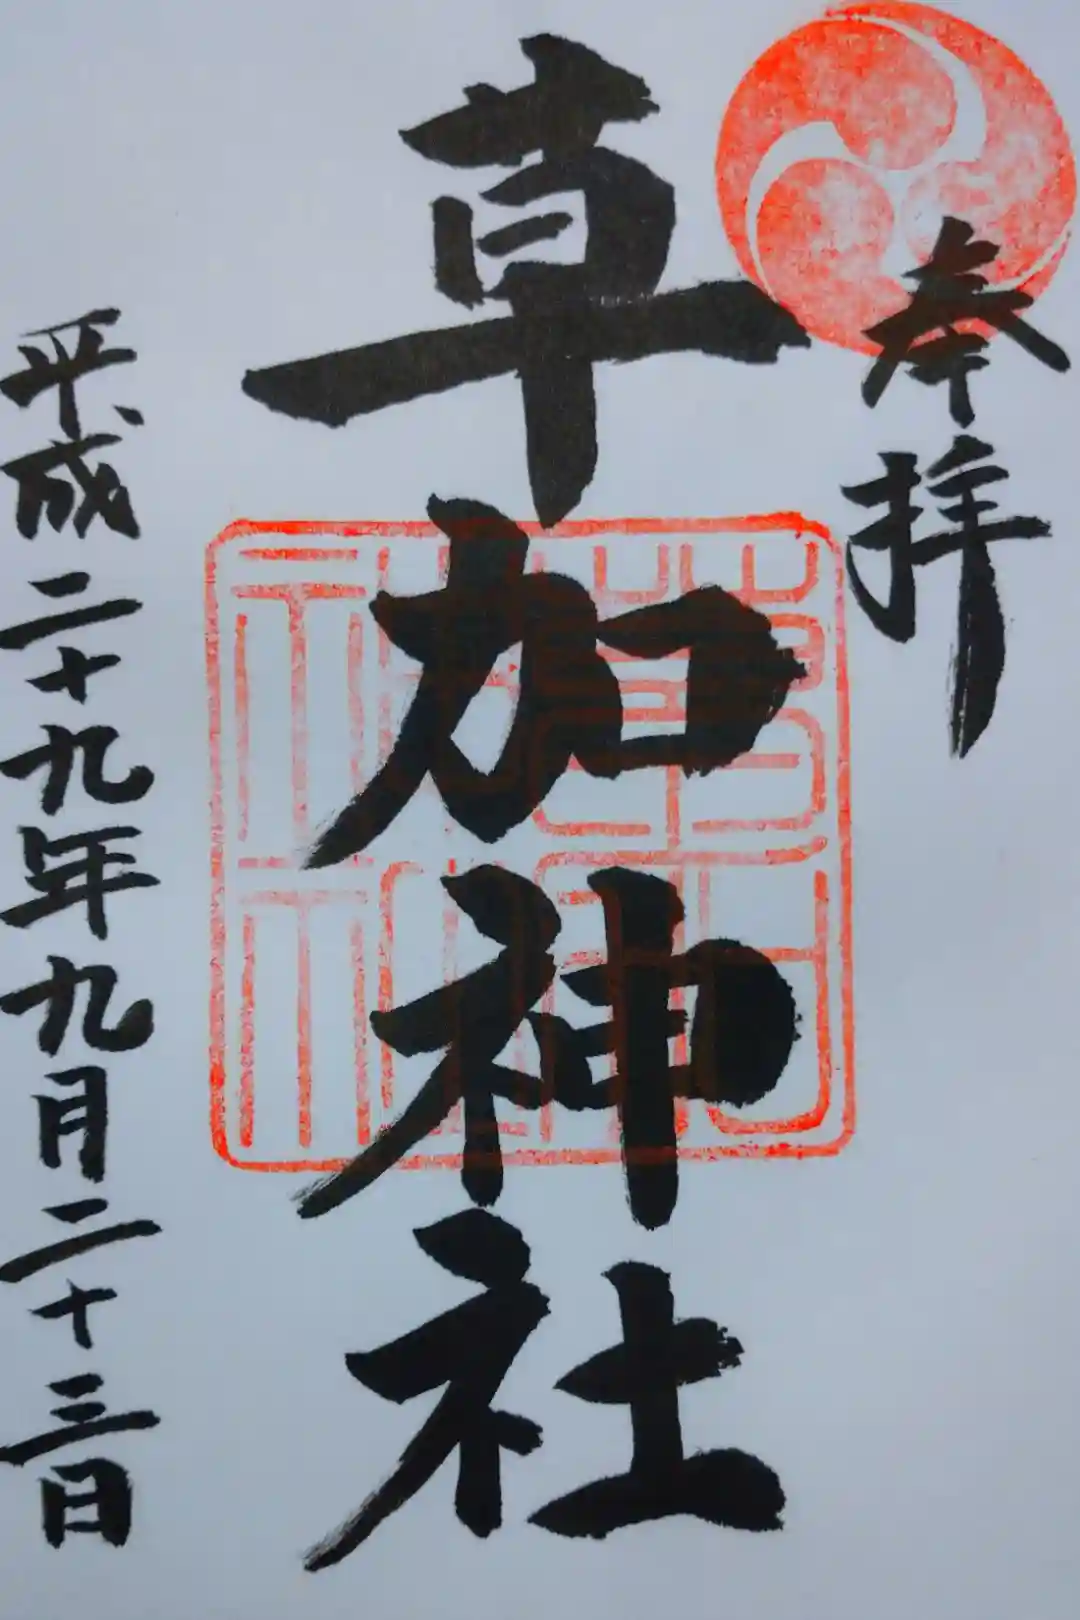 奉拝
草加神社
平成二十九年九月二十三日